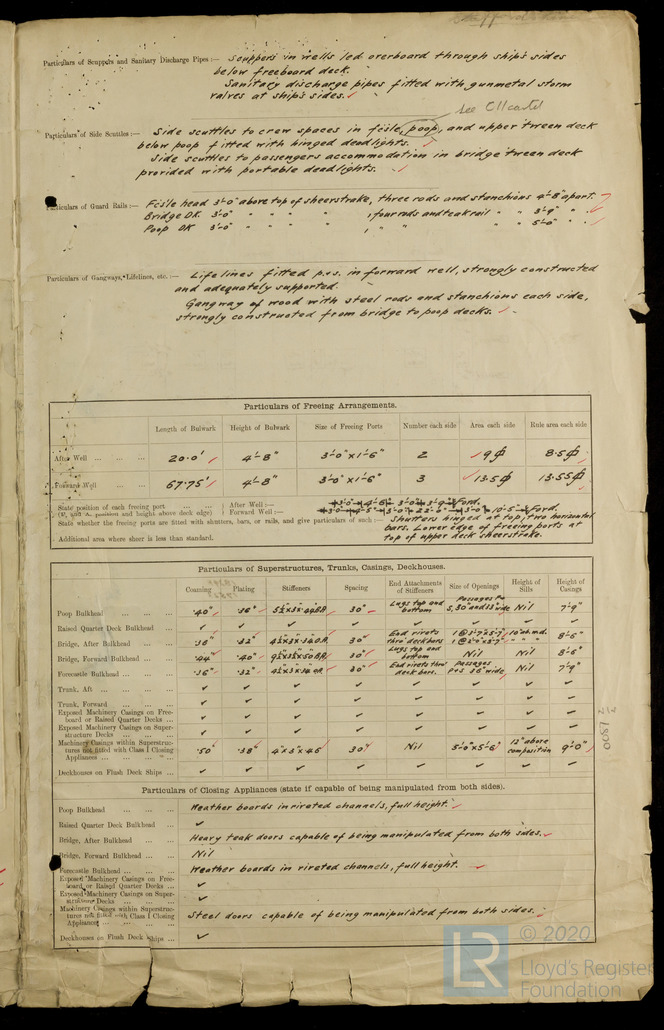 Particulars of Scuppers and Sanitary Discharge Pipes :— Scuppers in wells led overboard through ship's sides
below freeboard deck.
Sanitary discharge pipes fitted with gunmetal storm
valves at ship's sides.
See
Particulars of Side Scuttles :— Side scuttles to crew spaces in fo'c'sle, poop, and upper tween deck
below poop fitted with hinged deadlights.
Side scuttles to passengers accommodation in bridge tween deck
provided with portable deadlights.
Particulars of Guard Rails :— Fc'sle head 3'-0" above top of sheerstrake, three rods and stanchions 4'-8" apart.
Bridge DK. 3'-0" " " " " , four rods and teak rail " " 3'-9" "
Poop DK 3'-0" " " " " , " " " " 5'-0" "
Particulars of Gangways, Lifelines, etc. :— Lifelines fitted p.&s. in forward well, strongly constructed
and adequately supported.
Gangway of wood with steel rods and stanchions each side,
strongly constructed from bridge to poop decks.
Particulars of Freeing Arrangements.
Length of Bulwark Height of Bulwark Size of Freeing Ports Number each side Area each side Rule area each side
After Well ... ... ... 20.0' 4'-8" 3'-0" x 1'-6" 2 9 8.5
Forward Well ... ... 67.75' 4'-8" 3'-0" x 1'-6" 3 13.5 13.55
State position of each freeing port ... ... ... After Well :— Ford.
(F. and A. position and height above deck edge) Forward Well :— Ford.
State whether the freeing ports are fitted with shutters, bars, or rails, and give particulars of such :— Shutters hinged at top, two horizontal
bars. Lower edge of freeing ports at
Additional area where sheer is less than standard. top of upper deck sheerstrake.
Particulars of Superstructures, Trunks, Casings, Deckhouses.
Coaming Plating Stiffeners Spacing End Attachments of Stiffeners Size of Openings Height of Sills Height of Casings
Poop Bulkhead ... ... ... .40" .36" 30" Lugs top and bottom Passages Nil 7'-9"
Raised Quarter Deck Bulkhead ...
Bridge, After Bulkhead ... ... .36" .32" 30" End rivets thro' deck bars 8'-6"
Bridge, Forward Bulkhead ... .44" .40" 30" Lugs top and bottom Nil Nil 8'-6"
Forecastle Bulkhead ... ... .36" .32" 30" End rivets thro deck bars. Passages p&s 36" wide Nil 7'-9"
Trunk, Aft ... ... ...
Trunk, Forward ... ...
Exposed Machinery Casings on Free-
board or Raised Quarter Decks ...
Exposed Machinery Casings on Super-
structure Decks ... ... ...
Machinery Casings within Superstruc-
tures not fitted with Class I Closing .50" .38" 4" x 3" x .46" 30" Nil 5'-0" x 5'-6" 12" above composition 9'-0"
Appliances ... ... ...
Deckhouses on Flush Deck Ships ...
Particulars of Closing Appliances (state if capable of being manipulated from both sides).
Poop Bulkhead ... ... ... Weather boards in riveted channels, full height.
Raised Quarter Deck Bulkhead ...
Bridge, After Bulkhead ... ... Heavy teak doors capable of being manipulated from both sides.
Bridge, Forward Bulkhead ... ... Nil
Forecastle Bulkhead ... ... ... Weather boards in riveted channels, full height.
Exposed Machinery Casings on Free-
board or Raised Quarter Decks ...
Exposed Machinery Casings on Super-
structure Decks ... ... ...
Machinery Casings within Superstruc-
tures not fitted with Class I Closing Steel doors capable of being manipulated from both sides.
Appliances ... ... ...
Deckhouses on Flush Deck Ships ...
© 2020
LR
Lloyd's Register
Foundation